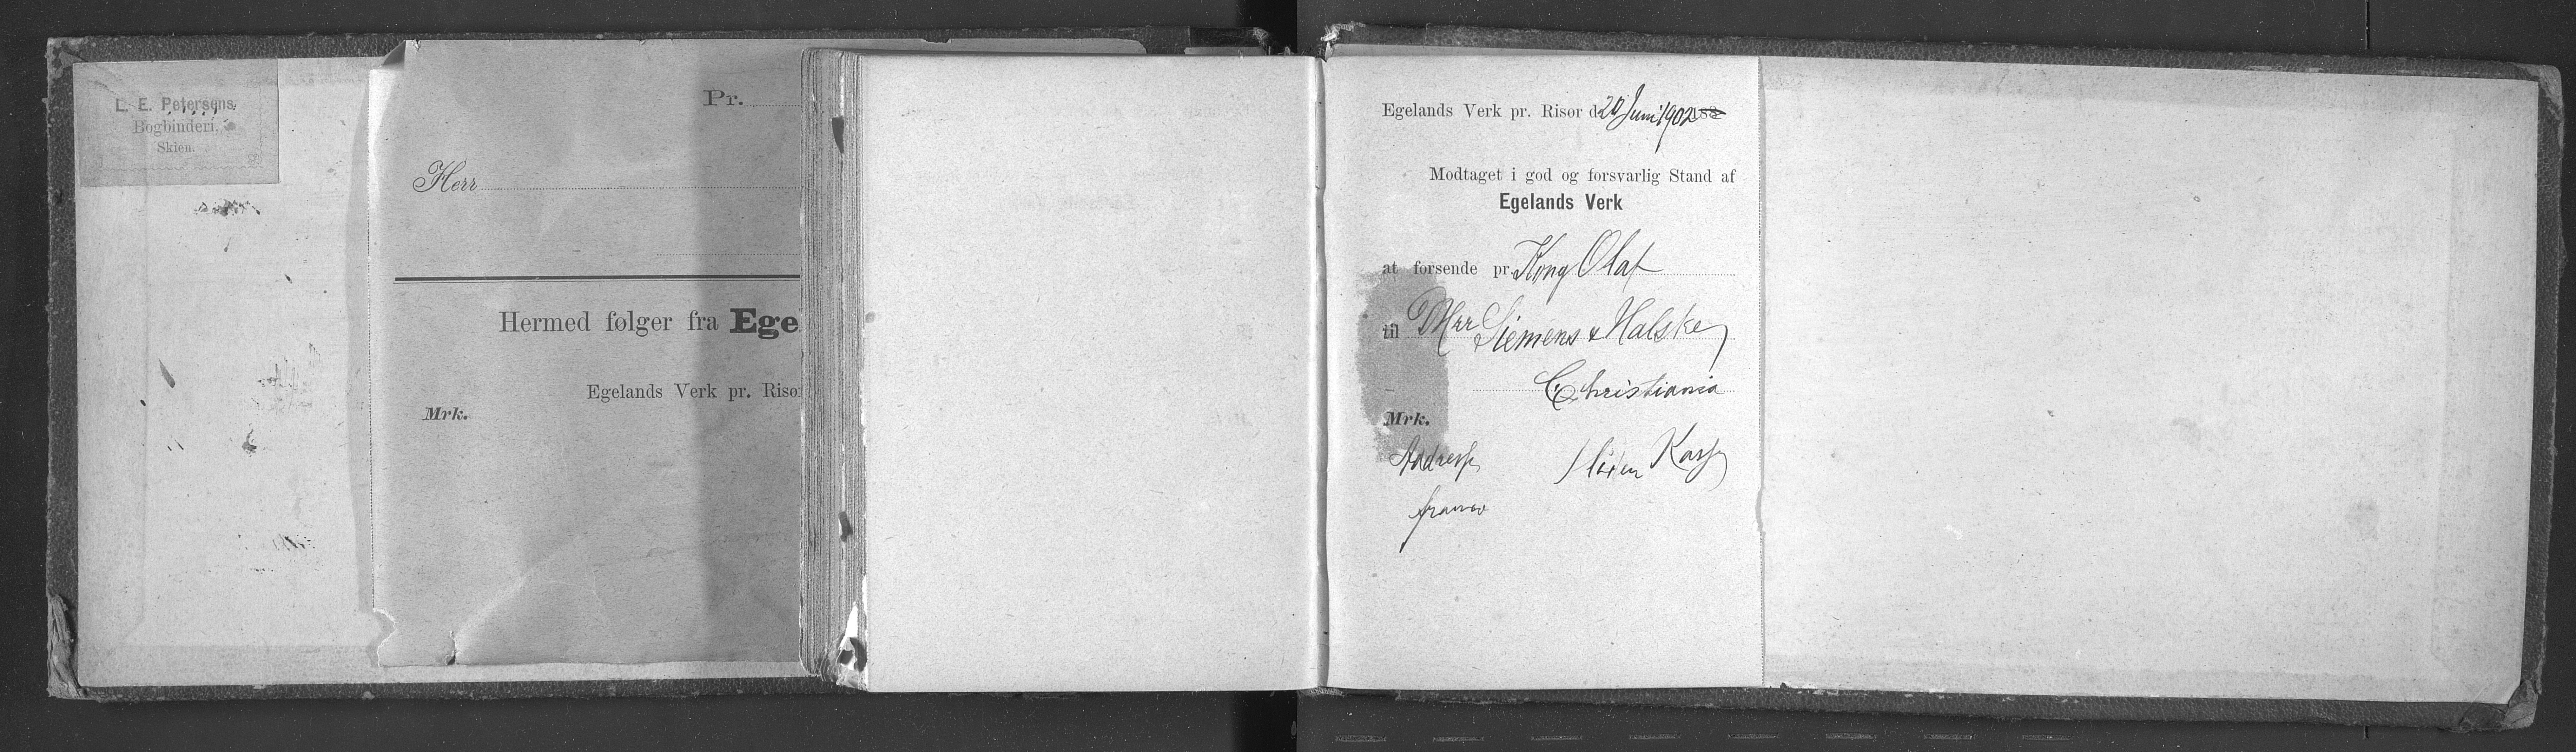 L. E. Petersens
Bogbinderi.
Skien.
Pr.
Herr
Hermed følger fra Ege
Egelands Verk pr. Risø
Mrk.
Egelands Verk pr. Risør d 20 Juni 1902 188
Modtaget i god og forsvarlig Stand af
Egelands Verk
at forsende pr. Kong Olaf
til DHrr Siemens & Halske
Christiania
Mrk.
Addresse
1 liten Kasse
franco